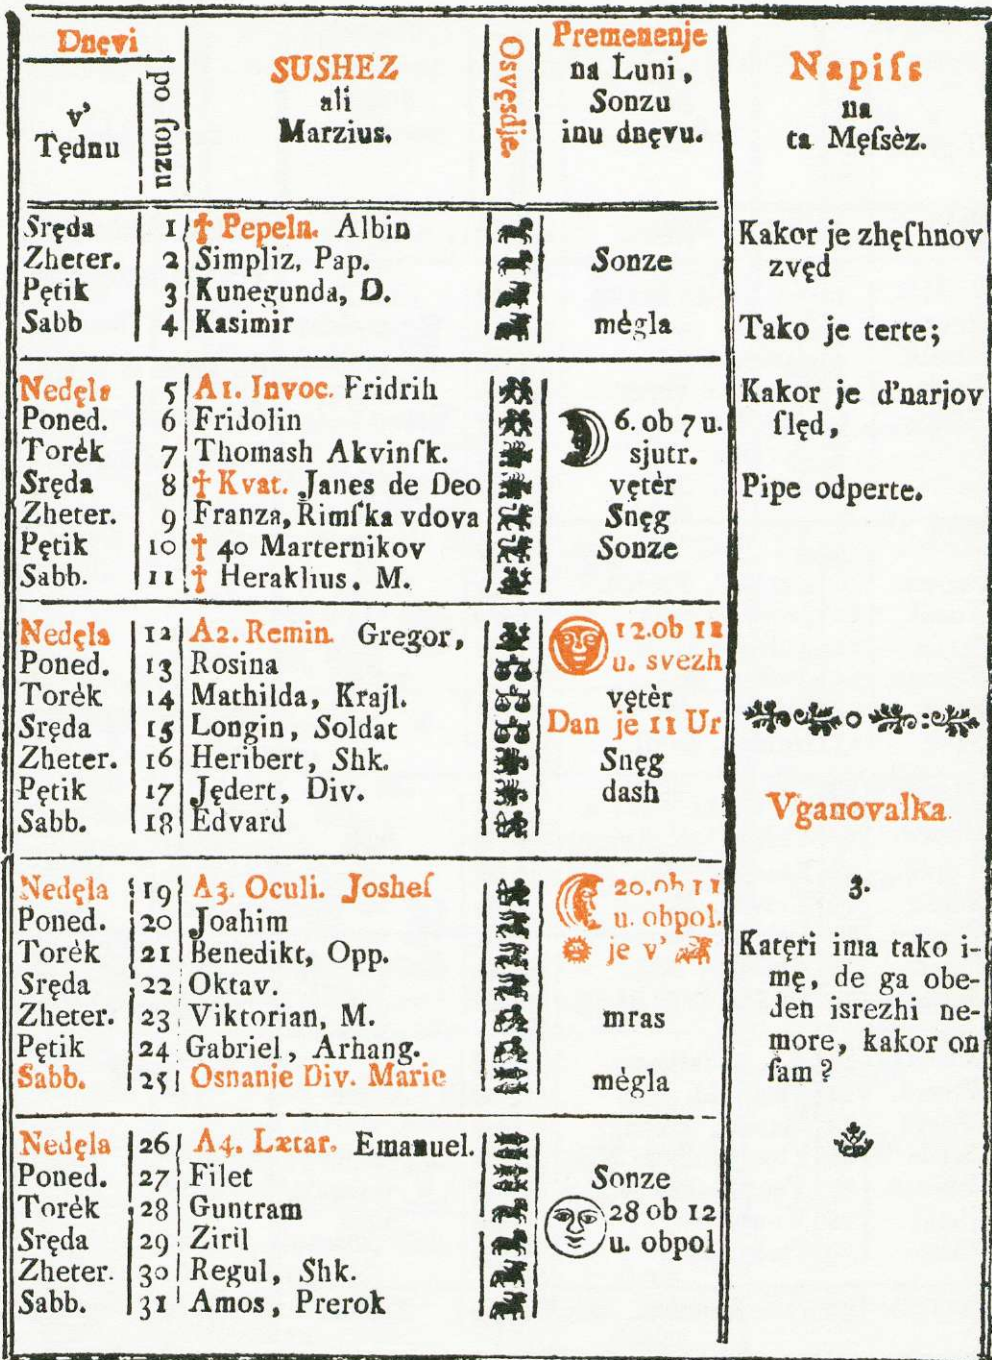 Dnęvi
v'
Tędnu
po ſonzu
SUSHEZ
ali
Marzius.
Osvęsdje.
Premenenje
na Luni,
Sonzu
inu dnęvu.
Napiſs
na
ta Męſsèz.
Sręda 1 † Pepeln. Albin
Zheter. 2 Simpliz, Pap. Sonze
Pętik 3 Kunegunda, D.
Sabb 4 Kasimir mègla
Nedęla 5 A1. Invoc. Fridrih
Poned. 6 Fridolin 6. ob 7 u.
Torèk 7 Thomash Akvinſk. sjutr.
Sręda 8 † Kvat. Janes de Deo vętèr
Zheter. 9 Franza, Rimſka vdova Snęg
Pętik 10 † 40 Marternikov Sonze
Sabb. 11 † Heraklius. M.
Nedęla 12 A2. Remin. Gregor, 12. ob 12
Poned. 13 Rosina u. svezh
Torèk 14 Mathilda, Krajl. vętèr
Sręda 15 Longin, Soldat Dan je 11 Ur
Zheter. 16 Heribert, Shk. Snęg
Pętik 17 Jędert, Div. dash
Sabb. 18 Edvard
Nedęla 19 A3. Oculi. Joshef 20. ob 11
Poned. 20 Joahim u. obpol.
Torèk 21 Benedikt, Opp. je v'
Sręda 22 Oktav.
Zheter. 23 Viktorian, M. mras
Pętik 24 Gabriel, Arhang.
Sabb. 25 Osnanie Div. Marie mègla
Nedęla 26 A4. Lætar. Emanuel.
Poned. 27 Filet Sonze
Torèk 28 Guntram 28 ob 12
Sręda 29 Ziril u. obpol
Zheter. 30 Regul, Shk.
Sabb. 31 Amos, Prerok
Kakor je zhęſhnov
zvęd
Tako je terte;
Kakor je d'narjov
ſlęd,
Pipe odperte.
Vganovalka
3.
Katęri ima tako i-
mę, de ga obe-
den isrezhi ne-
more, kakor on
ſam?